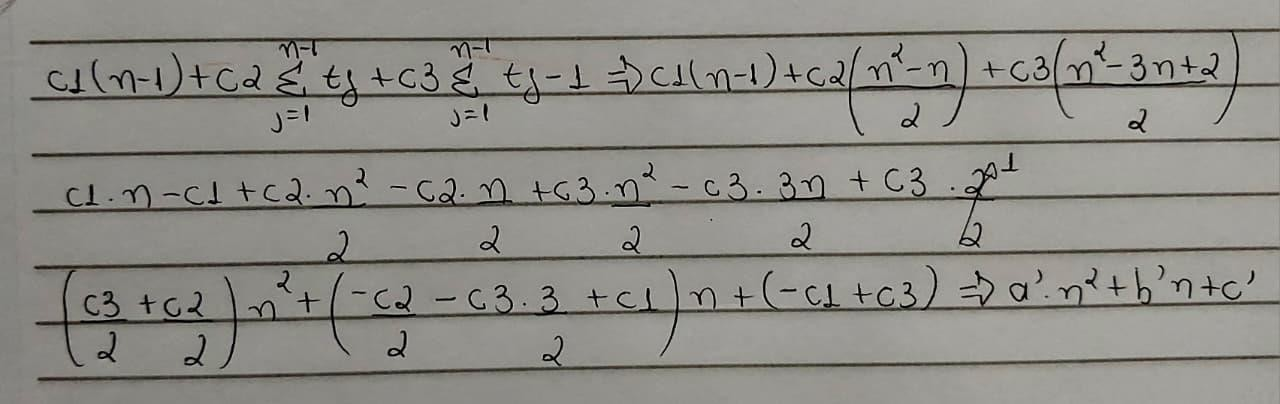 c1(n-1)+c2 n-1 Σ j=1 tj +c3 n-1 Σ j=1 tj-1 ⇒ c1(n-1)+c2(n²-n / 2) +c3(n²-3n+2 / 2)
c1.n-c1+c2.n²/2 -c2.n/2 +c3.n²/2 - c3.3n/2 + c3.2/2 1
(c3/2 + c2/2) n² + (-c2/2 - c3.3/2 + c1) n + (-c1+c3) ⇒ a'.n²+b'n+c'